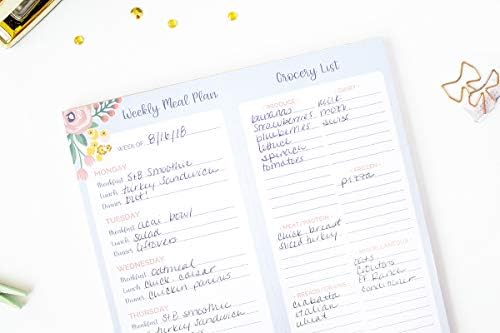 Weekly Meal Plan
WEEK OF 8/16/18
MONDAY
Breakfast S+B Smoothie
Lunch turkey sandwich
Dinner out!
TUESDAY
Breakfast acai bowl
Lunch Salad
Dinner leftovers
WEDNESDAY
Breakfast oatmeal
Lunch chick. caesar
Dinner chicken
THURSDAY
Breakfast Smoothie
turkey sandwich
Grocery List
PRODUCE
bananas
strawberries
blueberries
lettuce
spinach
tomatoes
DAIRY
milk
mozz
swiss
FROZEN
pizza
MEAT/PROTEIN
chick breast
sliced turkey
BREAD/GRAINS
ciabatta
italian
wheat
MISCELLANEOUS
oats
croutons
FF Ranch
conditioner